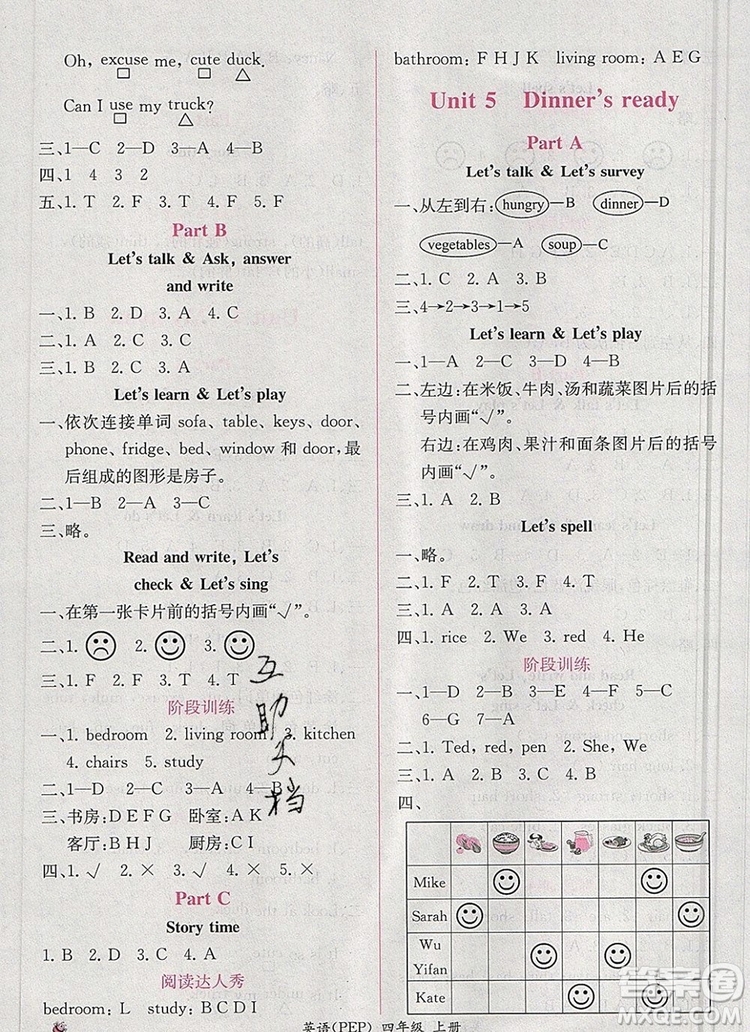 Oh, excuse me, cute duck.
Can I use my truck?
三、1—C 2—D 3—A 4—B
四、1 4 3 2
五、1. T 2. F 3. T 4. F 5. F
Part B
Let's talk & Ask, answer
and write
一、1. B 2. D 3. A 4. C
三、1. C 2. A 3. B
Let's learn & Let's play
一、依次连接单词 sofa, table, keys, door,
phone, fridge, bed, window 和 door,最
后组成的图形是房子。
二、1—B 2—A 3—C
三、略。
Read and write, Let's
check & Let's sing
一、在第一张卡片前的括号内画“√”。
二、1. 2. 3.
三、1. F 2. F 3. T 4. T
阶段训练
一、1. bedroom 2. living room 3. kitchen
4. chairs 5. study
二、1—D 2—C 3—A 4—B
三、书房:D E F G 卧室:A K
客厅:B H J 厨房:C I
四、1. √ 2. × 3. √ 4. × 5. ×
Part C
Story time
1. B 2. D 3. A 4. C
阅读达人秀
bedroom: L study: B C D I
bathroom: F H J K living room: A E G
Unit 5 Dinner's ready
Part A
Let's talk & Let's survey
一、从左到右: hungry—B dinner—D
vegetables—A soup—C
二、1. C 2. A 3. D 4. B
三、4→2→3→1→5
Let's learn & Let's play
一、1—A 2—D 3—C 4—B
二、左边:在米饭、牛肉、汤和蔬菜图片后的括
号内画“√”。
右边:在鸡肉、果汁和面条图片后的括号
内画“√”。
三、1. A 2. A 3. B 4. B 5. A
Let's spell
一、略。
二、1. F 2. T 3. F 4. F 5. T
三、1. A 2. A 3. A
四、1. rice 2. We 3. red 4. He
阶段训练
一、1—C 2—D 3—B 4—E 5—F
6—G 7—A
二、1. Ted, red, pen 2. She, We
三、1. C 2. D 3. A 4. B
四、
Mike
Sarah
Wu
Yifan
Kate
互助文档
英语(PEP) 四年级 上册